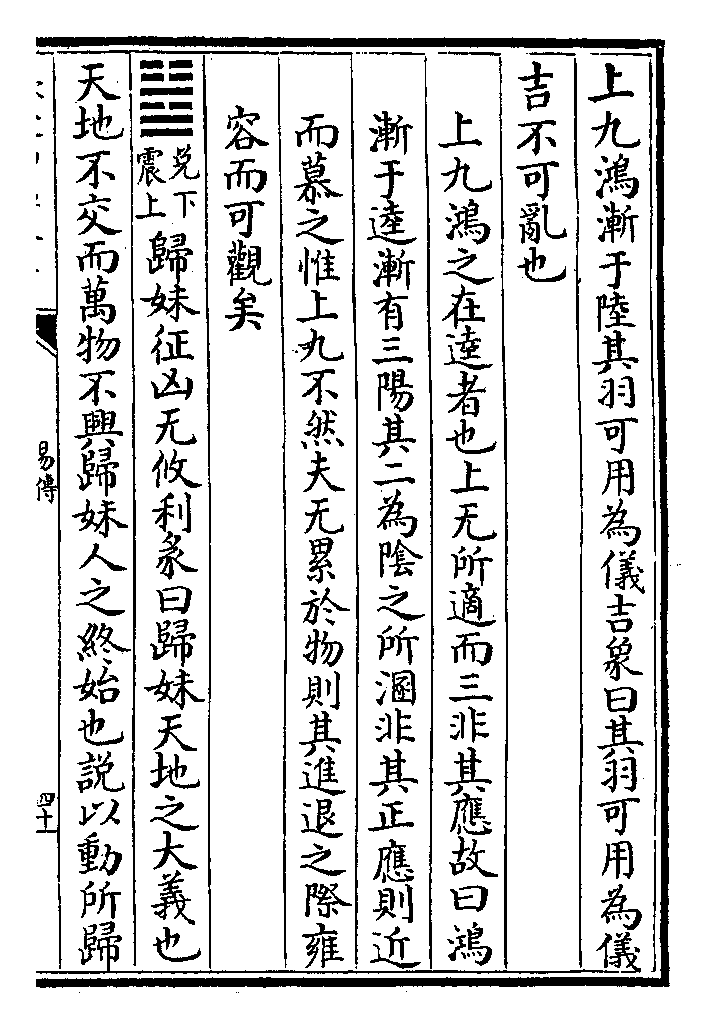 上九鴻漸于陸其羽可用為儀吉象曰其羽可用為儀
吉不可亂也
上九鴻之在逵者也上无所適而三非其應故曰鴻
漸于逵漸有三陽其二為陰之所溷非其正應則近
而慕之惟上九不然夫无累於物則其進退之際雍
容而可觀矣
兌下
震上
歸妹征凶无攸利彖曰歸妹天地之大義也
天地不交而萬物不興歸妹人之終始也說以動所歸
易傳
四十